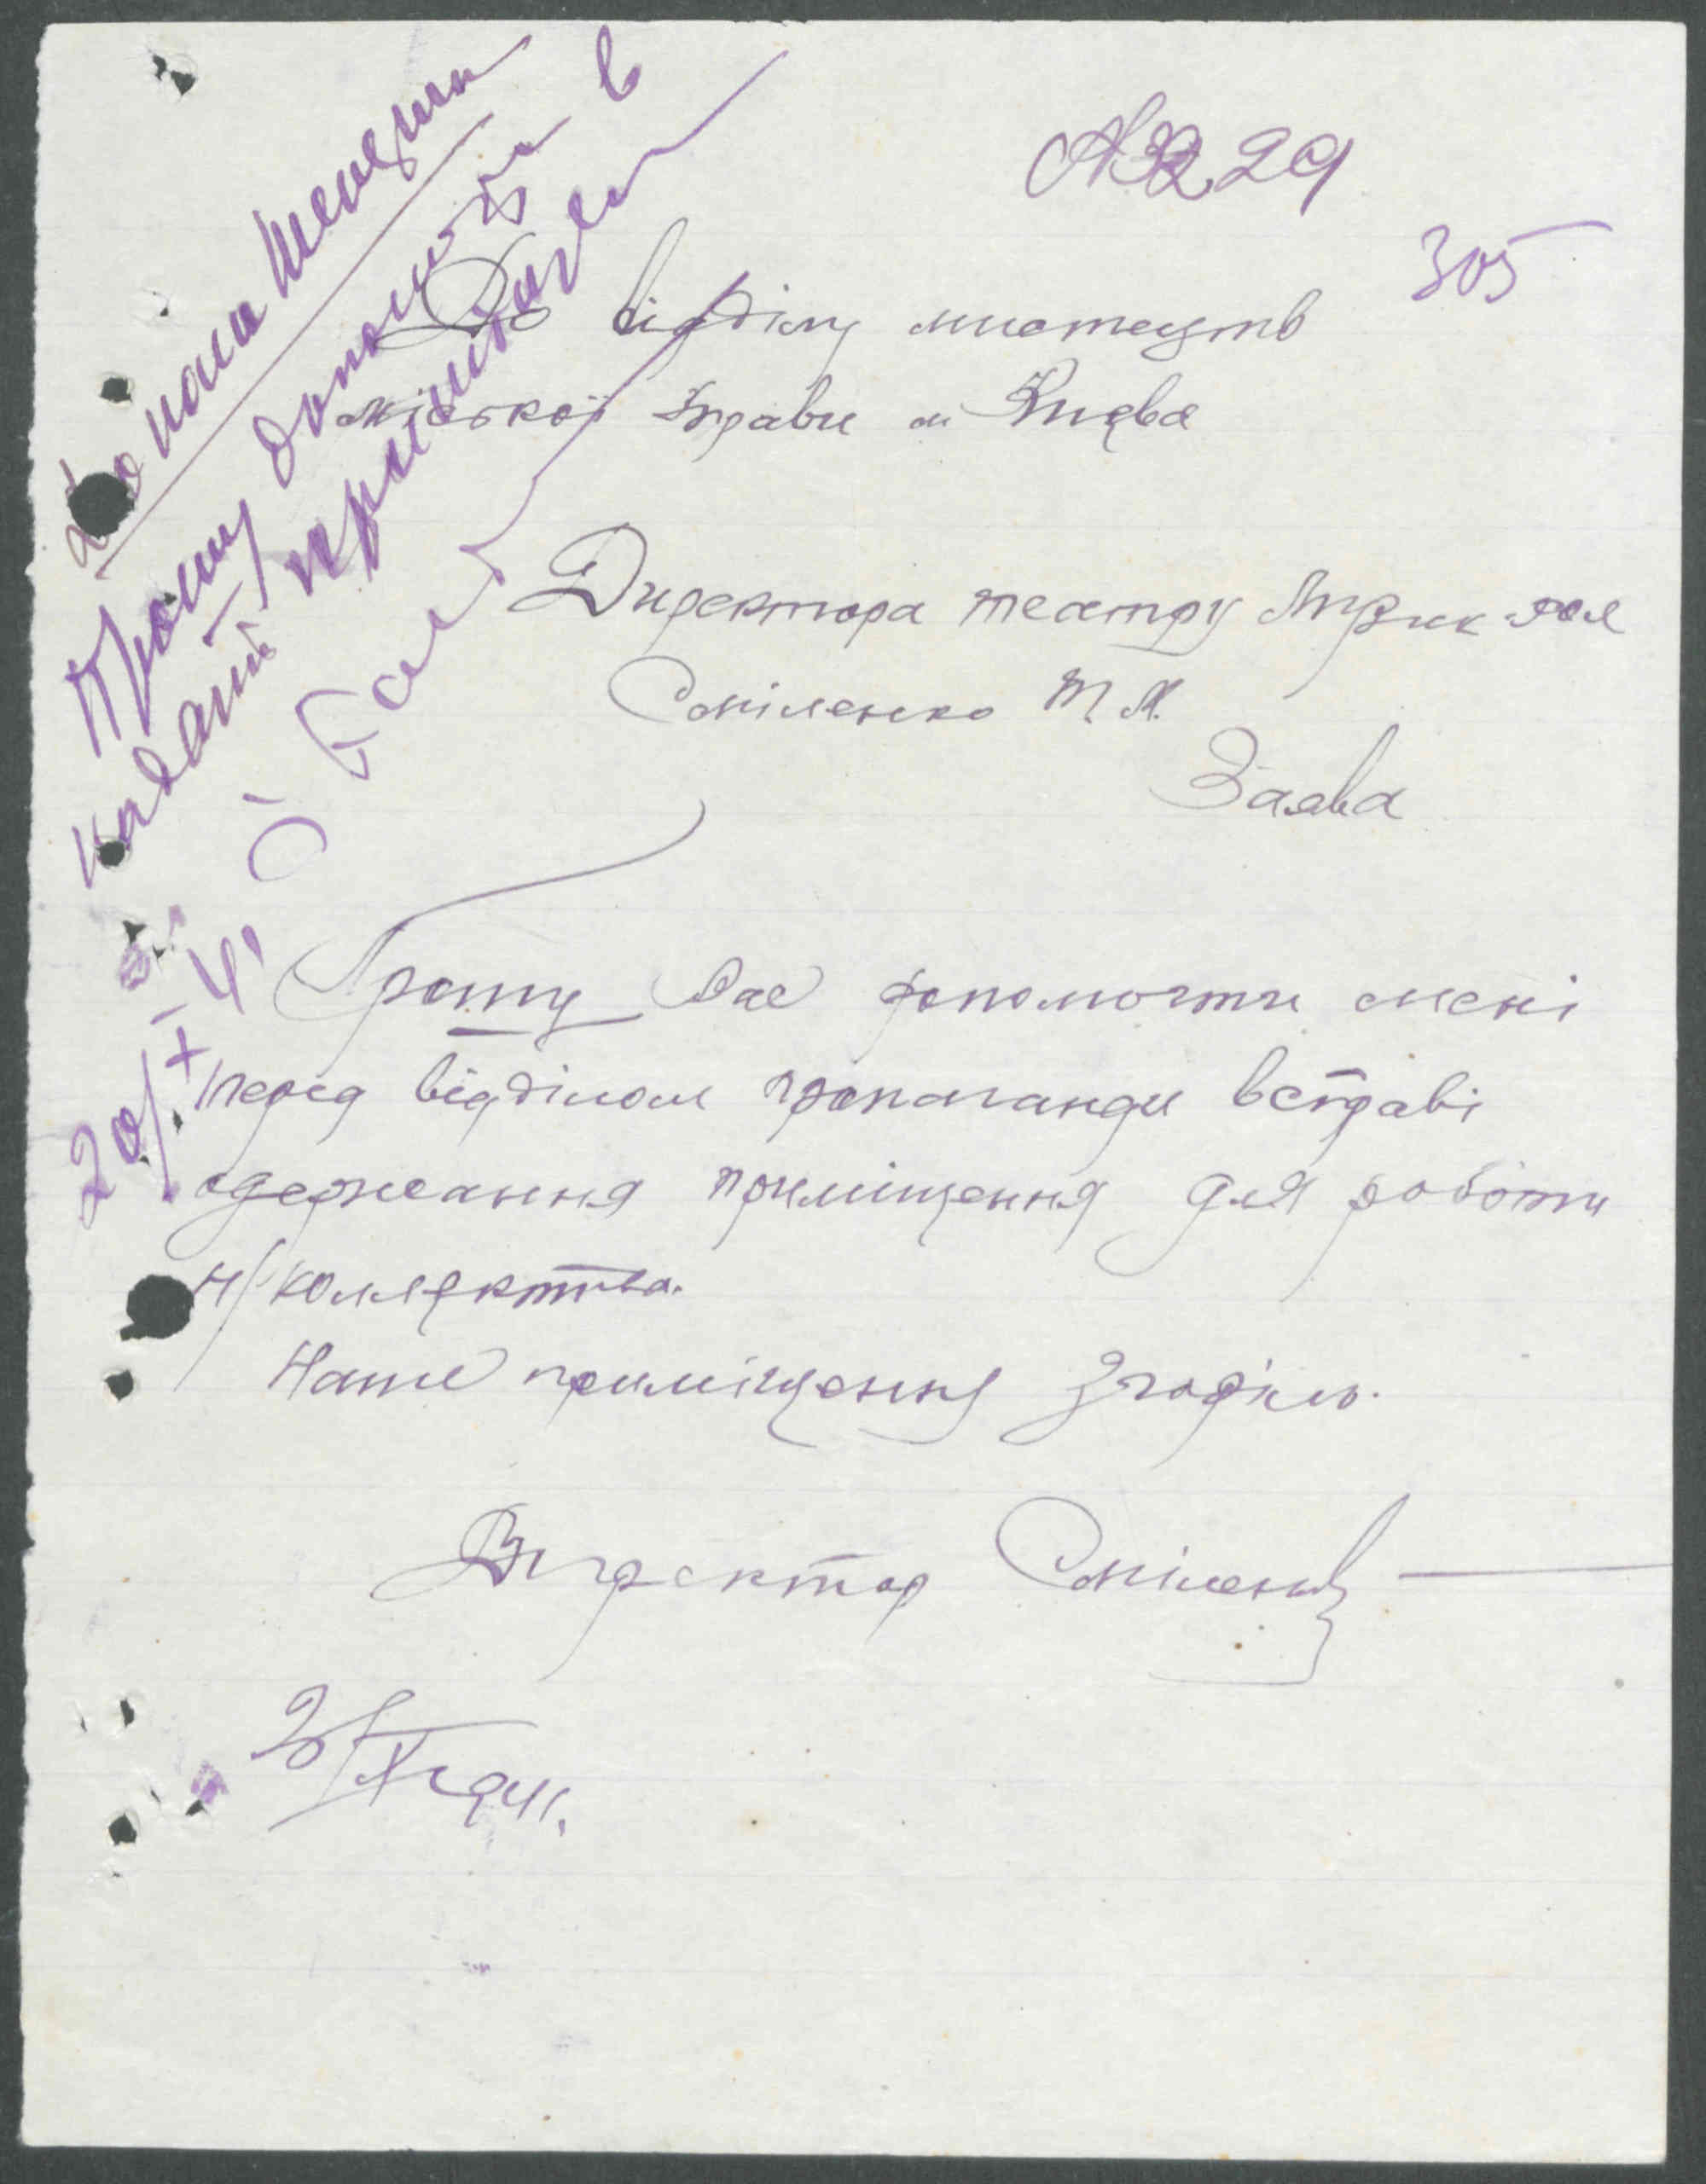 № 29
305
До пана Шепеля
Прошу допомогти в
наданні приміщення
20/X 41
До відділу мистецтв
міської Управи м Києва
Директора театру
Соміленко Т. Я.
Заява
Прошу Вас допомогти мені
перед відділом пропаганди в справі
одержання приміщення для роботи
н/ коллектива.
Наше приміщення згоріло.
Директор Соміленко
20/X 1941.